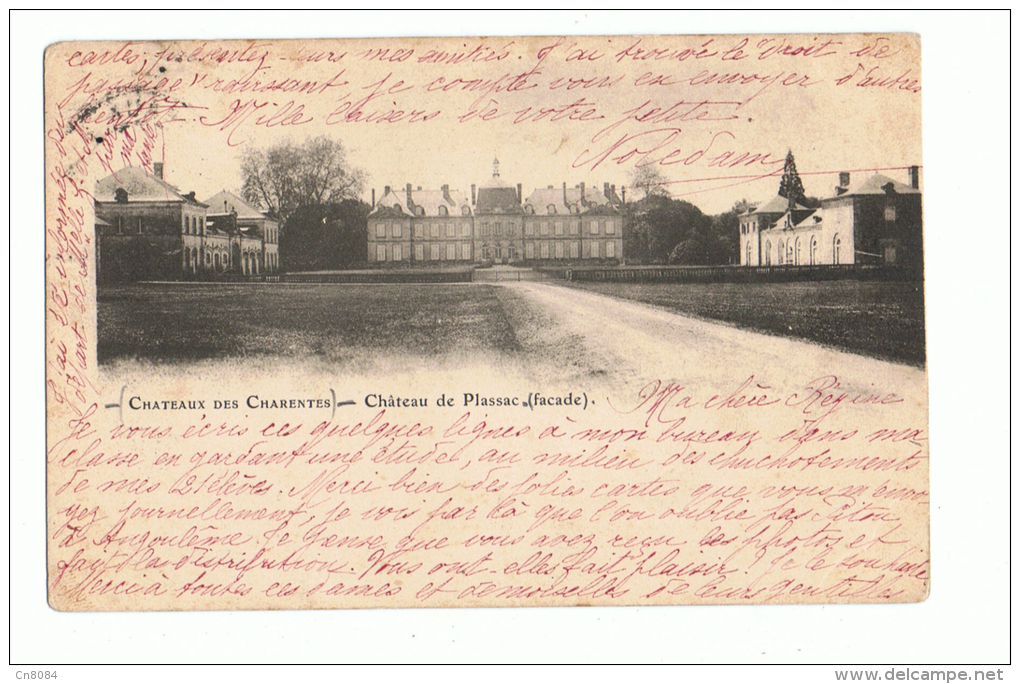 cartes, présentez leurs mes amitiés. J'ai trouvé le "Droit de
passage" ravissant je compte vous en envoyer d'autres
bientôt. Mille baisers de votre petite
J'ai
(CHATEAUX DES CHARENTES) — Château de Plassac (facade).
Ma chère Régine
Je vous écris ces quelques lignes à mon bureau dans ma
classe en gardant une étude, au milieu des chuchotements
de mes 21 élèves. Merci bien des jolies cartes que vous m'envo
yez journellement, je vois par là que l'on oublie pas
à Angoulême. Je pense que vous avez reçu les photos et
fait la distribution. Vous ont-elles fait plaisir? Je le souhaite
Merci à toutes ces dames et demoiselles de leurs gentilles
Cn8084
www.delcampe.net